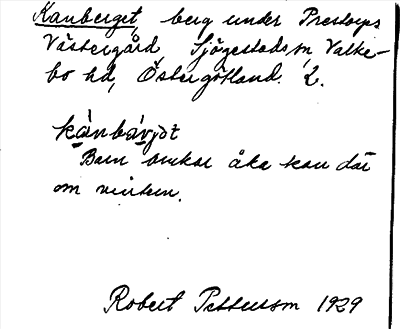 Kanberget, berg under Prestorps
Västergård Sjögestads sn Valke-
bo hd, Östergötland. 2.
kànbárjət
Barn brukar åka kan där
om vintern.
Robert Pettersson 1929